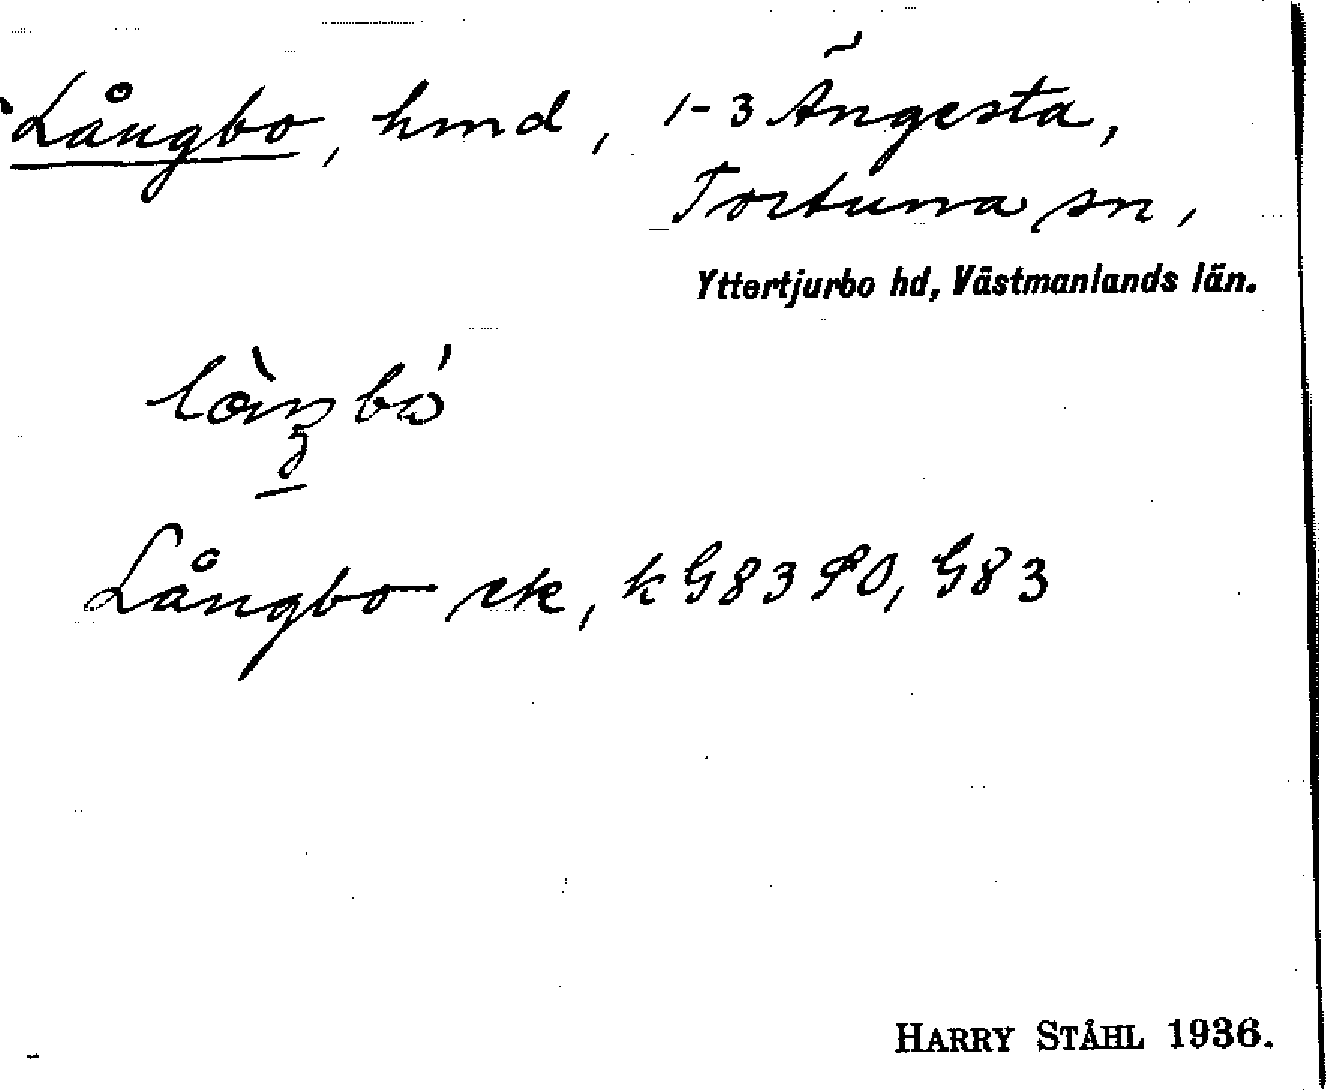 Långbo, hmd, 1-3 Ängesta,
Tortuna sn,
Yttertjurbo hd, Västmanlands län.
Långbo rk, k G83 SO, G83
HARRY STÅHL 1936.